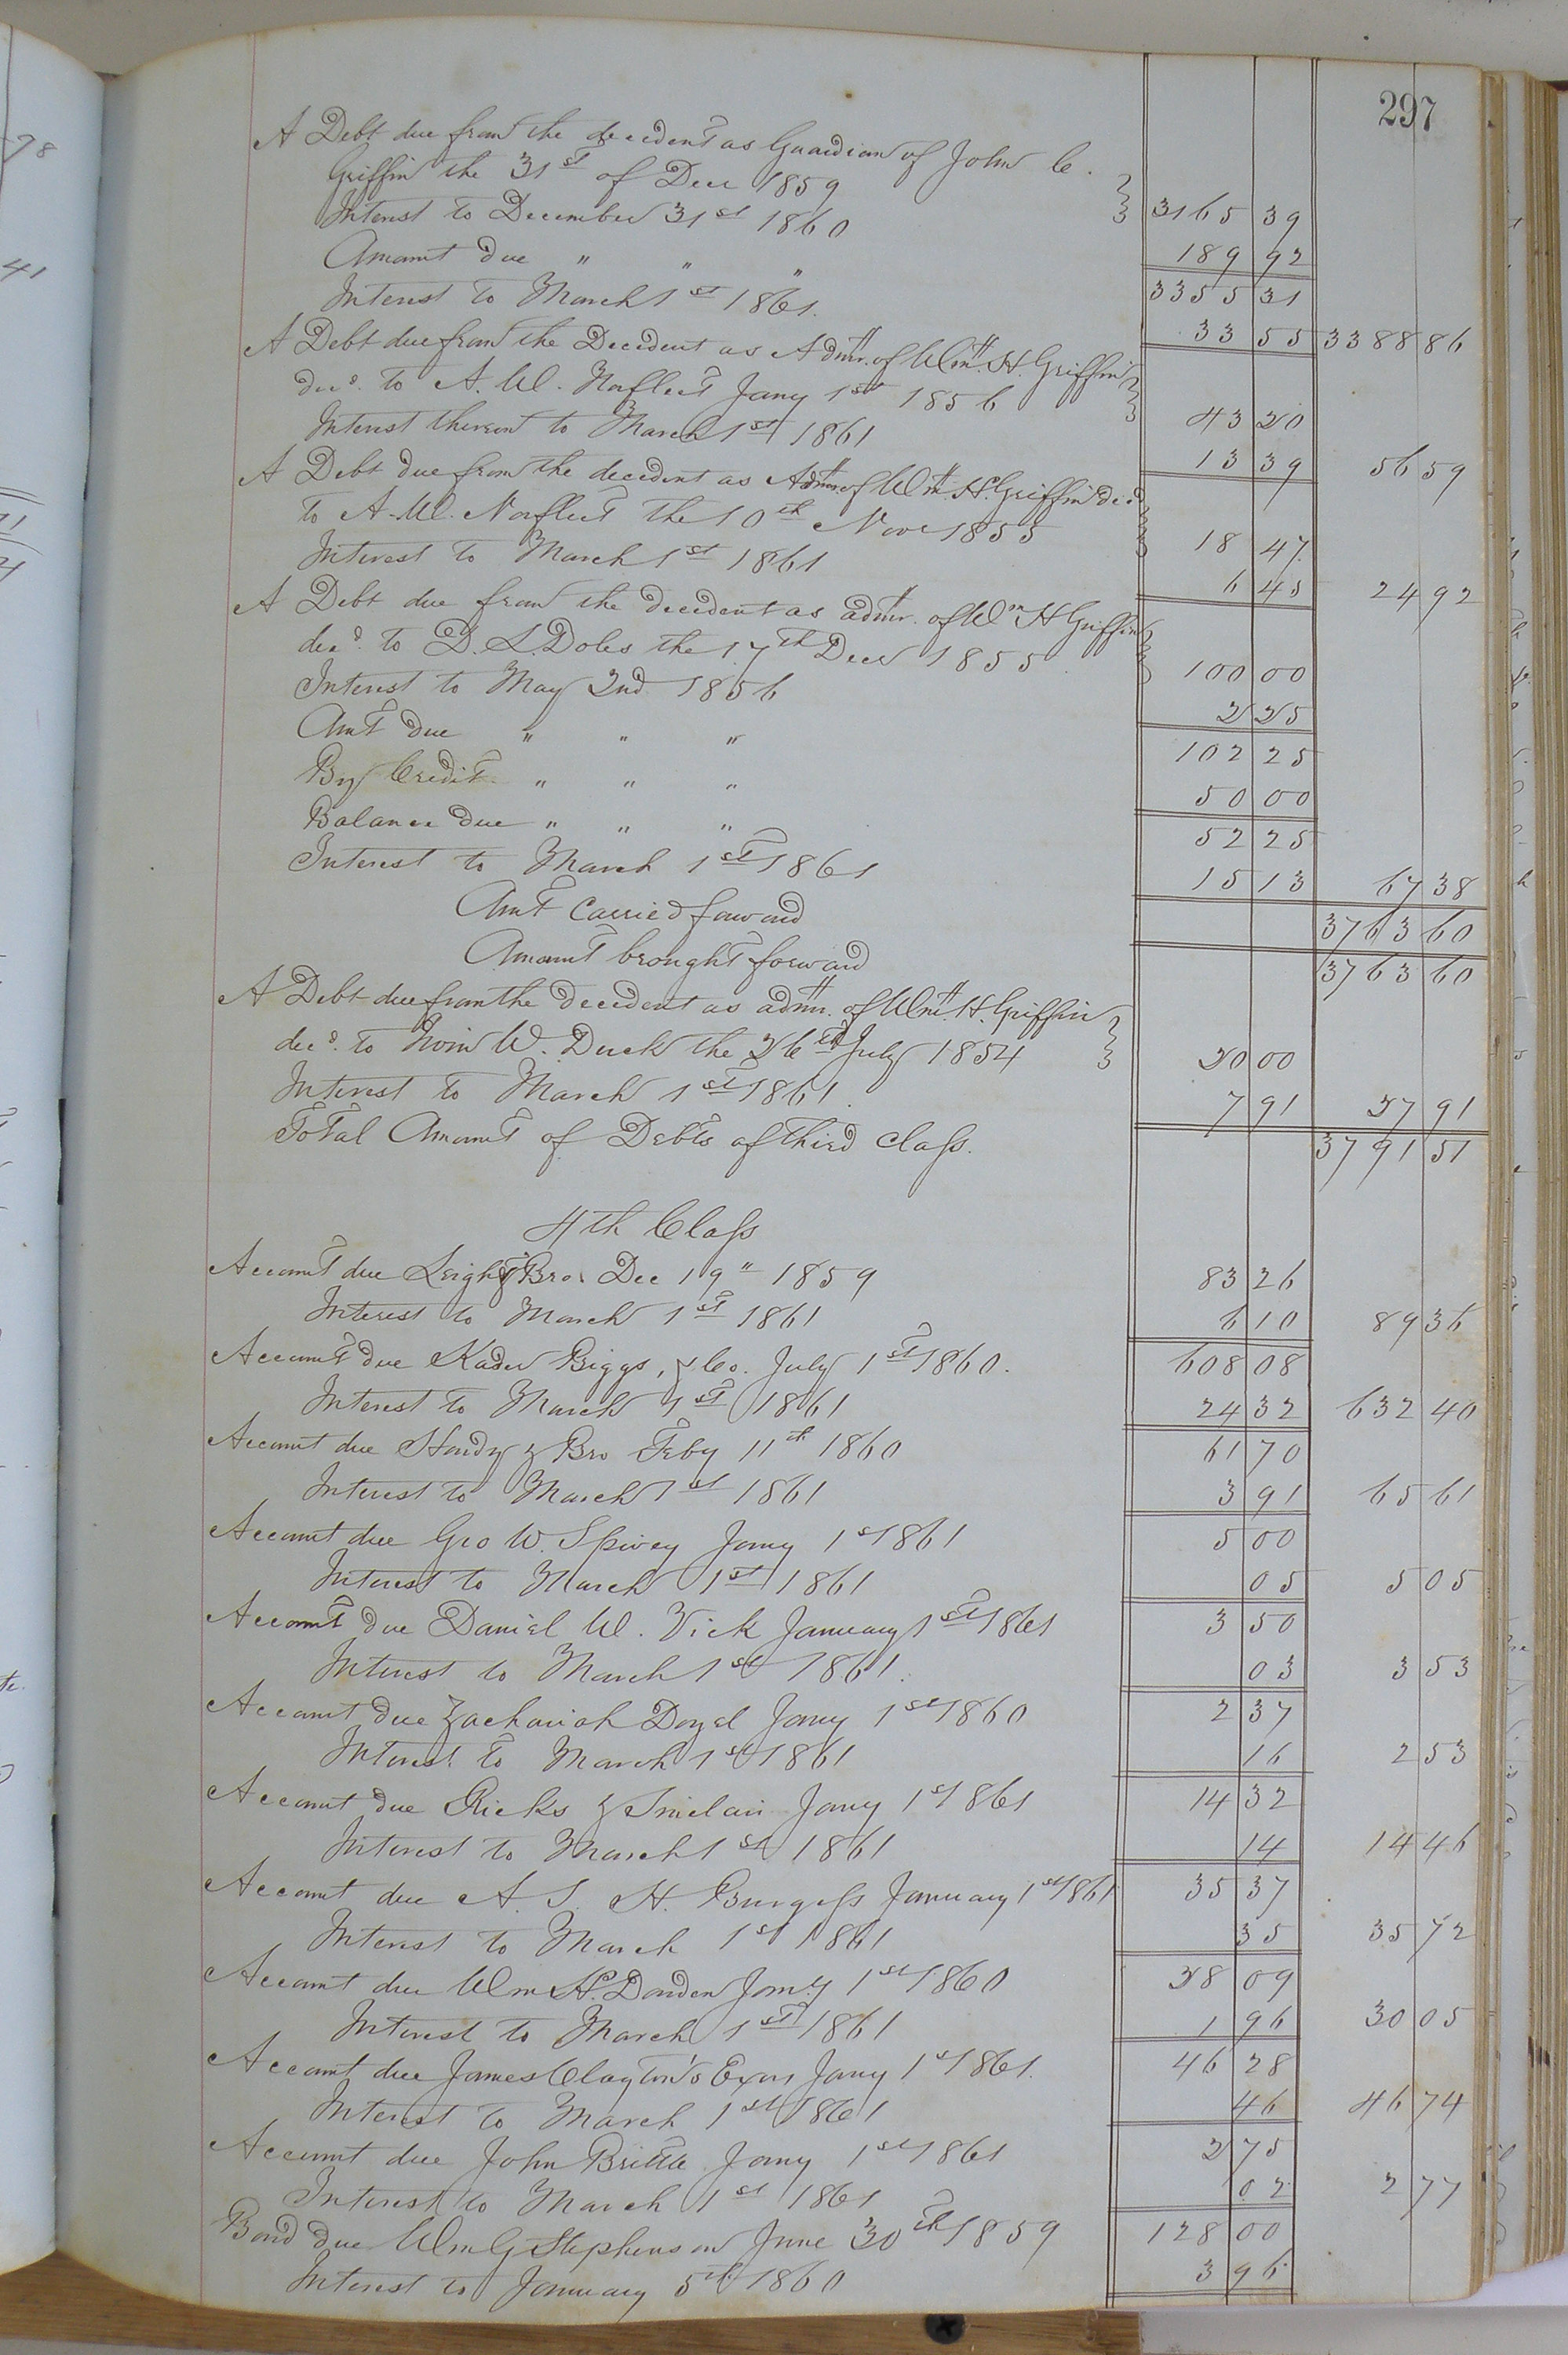 297
A Debt due from the decedent as Guardian of John C.
Griffin the 31st of Dec 1859 3165 39
Interest to December 31st 1860 189 92
Amount due " " " 3355 31
Interest to March 1st 1861. 33 55 3388 86
A Debt due from the Decedent as Admr. of Wm. H. Griffin
decd. to A. W. Norfleet Jany 1st 1856 43 20
Interest thereon to March 1st 1861 13 39 56 59
A Debt due from the decedent as Admr of Wm. H. Griffin decd
to A. W. Norfleet the 10th Nov 1855 18 47
Interest to March 1st 1861 6 45 24 92
A Debt due from the decedent as admr. of Wm H Griffin
decd. to D. L. Doles the 17th Decr 1855 100 00
Interest to May 2nd 1856 2 25
Amt due " " " 102 25
By Credit " " " 50 00
Balance due " " " 52 25
Interest to March 1st 1861 15 13 67 38
Amt carried forward 3763 60
Amount brought forward 3763 60
A Debt due from the decedent as admr. of Wm. H. Griffin
decd. to W. Duck the 26th July 1854 20 00
Interest to March 1st 1861. 7 91 27 91
Total Amount of Debts of third class. 3791 51
4th Class
Account due Leigh & Bro. Dec 19" 1859 83 26
Interest to March 1st 1861 6 10 89 36
Account due Kader Biggs, & Co. July 1st 1860. 608 08
Interest to March 1st 1861 24 32 632 40
Account due Hardy & Bro Feby 11th 1860 61 70
Interest to March 1st 1861 3 91 65 61
Account due Geo W. Spivey Jany 1st 1861 5 00
Interest to March 1st 1861 05 5 05
Account due Daniel W. Vick January 1st 1861 3 50
Interest to March 1st 1861. 03 3 53
Account due Zachariah Doyel Jany 1st 1860 2 37
Interest to March 1st 1861 16 2 53
Account due Ricks & Sinclair Jany 1st 1861 14 32
Interest to March 1st 1861 14 14 46
Account due A. S. H. Burgess January 1st 1861 35 37
Interest to March 1st 1861 35 35 72
Account due Wm H. Darden Jany 1st 1860 28 09
Interest to March 1st 1861 1 96 30 05
Account due James Clayton's Exors Jany 1st 1861. 46 28
Interest to March 1st 1861 46 46 74
Account due John Britte Jany 1st 1861 2 75
Interest to March 1st 1861 02 2 77
Bond due Wm G Stephenson June 30th 1859 128 00
Interest to January 5th 1860 3 96